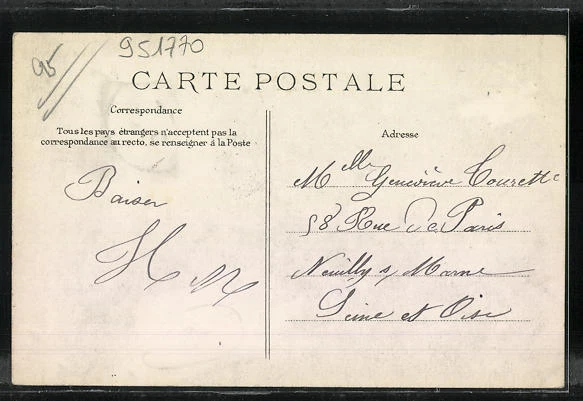 95
951770
CARTE POSTALE
Correspondance
Tous les pays étrangers n'acceptent pas la
correspondance au recto, se renseigner à la Poste
Baiser
H M
Adresse
Melle Geneviève Tourette
58 Rue De Paris
Neuilly s/ Marne
Seine et Oise